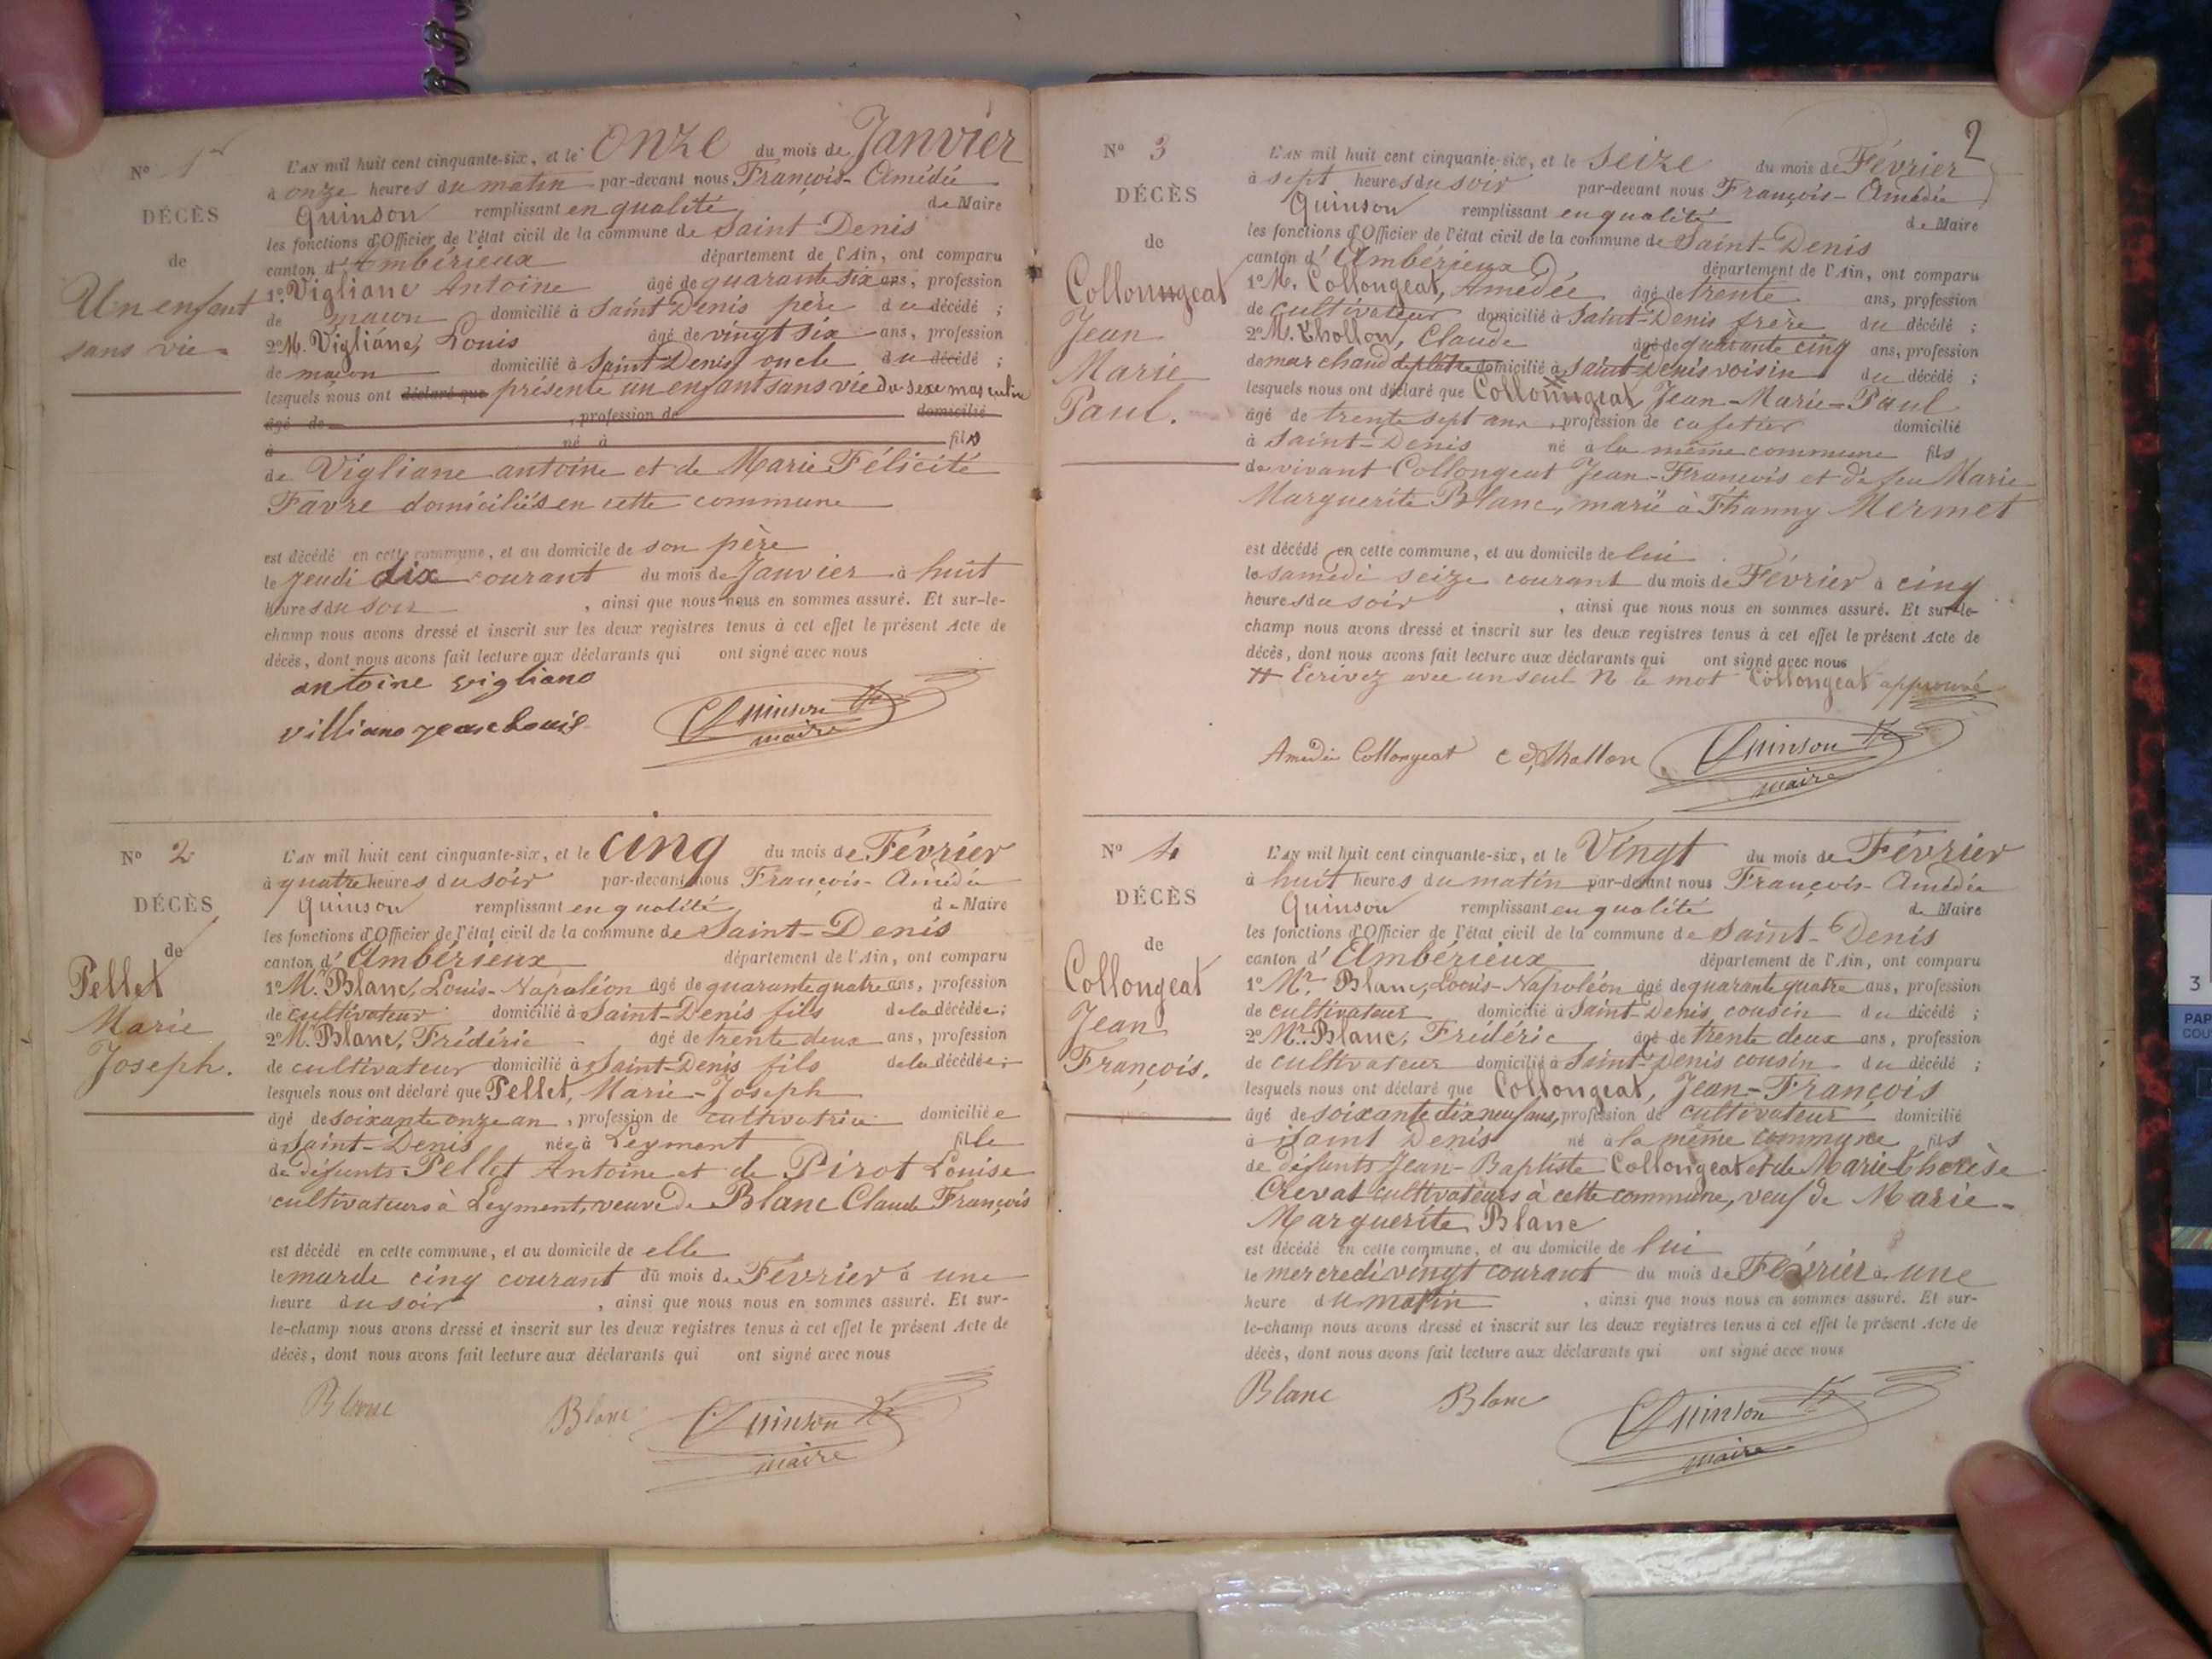 No 1er
DÉCÈS
de
Un enfant
sans vie
L'AN mil huit cent cinquante-six, et le onze du mois de Janvier
à onze heures du matin par-devant nous François-Amédée
Quinson remplissant en qualité de Maire
les fonctions d'Officier de l'état civil de la commune de Saint Denis
canton d'Ambérieux département de l'Ain, ont comparu
1º Vigliane Antoine âgé de quarante six ans, profession
de maçon domicilié à Saint Denis père du décédé ;
2º M. Vigliane, Louis âgé de vingt six ans, profession
de maçon domicilié à Saint Denis oncle du décédé ;
lesquels nous ont déclaré que présenté un enfant sans vie du sexe masculin
âgé de , profession de domicilié
à né à fils
de Vigliane antoine et de Marie Félicité
Favre domiciliés en cette commune
est décédé en cette commune, et au domicile de son père
le jeudi dix courant du mois de Janvier à huit
heures du soir , ainsi que nous nous en sommes assuré. Et sur-le-
champ nous avons dressé et inscrit sur les deux registres tenus à cet effet le présent Acte de
décès, dont nous avons fait lecture aux déclarants qui ont signé avec nous
antoine vigliano
villiano jean louis Quinson
maire
No 2
DÉCÈS
de
Pellet
Marie
Joseph.
L'AN mil huit cent cinquante-six, et le cinq du mois de Février
à quatre heures du soir par-devant nous François-Amédée
Quinson remplissant en qualité de Maire
les fonctions d'Officier de l'état civil de la commune de Saint-Denis
canton d'Ambérieux département de l'Ain, ont comparu
1º Mr. Blanc, Louis-Napoléon âgé de quarante quatre ans, profession
de cultivateur domicilié à Saint-Denis fils de la décédée ;
2º Mr. Blanc, Frédéric âgé de trente deux ans, profession
de cultivateur domicilié à Saint-Denis fils de la décédée ;
lesquels nous ont déclaré que Pellet, Marie-Joseph
âgé de soixante onze an , profession de cultivatrice domiciliée
à Saint-Denis née à Leyment fille
de défunts Pellet Antoine et de Pirot Louise
cultivateurs à Leyment, veuve de Blanc Claude François
est décédé en cette commune, et au domicile de elle
le marde cinq courant du mois de Février à une
heure du soir , ainsi que nous nous en sommes assuré. Et sur-
le-champ nous avons dressé et inscrit sur les deux registres tenus à cet effet le présent Acte de
décès, dont nous avons fait lecture aux déclarants qui ont signé avec nous
Blanc Blanc Quinson
maire
2
No 3
DÉCÈS
de
Collonngeat
Jean
Marie
Paul.
L'AN mil huit cent cinquante-six, et le seize du mois de Février
à sept heures du soir par-devant nous François-Amédée
Quinson remplissant en qualité de Maire
les fonctions d'Officier de l'état civil de la commune de Saint-Denis
canton d'Ambérieux département de l'Ain, ont comparu
1º M. Collongeat, Amédée âgé de trente ans, profession
de cultivateur domicilié à Saint-Denis frère du décédé ;
2º M. Thollon, Claude âgé de quarante cinq ans, profession
de marchand de plâtre domicilié à Saint Denis voisin du décédé ;
lesquels nous ont déclaré que Collonngeat, Jean-Marie-Paul
âgé de trente sept ans, profession de cafetier domicilié
à Saint-Denis né à la même commune fils
de vivant Collongeat Jean-François et de feu Marie
Marguerite Blanc, marié à Fhanny Mermet
est décédé en cette commune, et au domicile de lui
le samedi seize courant du mois de Février à cinq
heures du soir , ainsi que nous nous en sommes assuré. Et sur-le-
champ nous avons dressé et inscrit sur les deux registres tenus à cet effet le présent Acte de
décès, dont nous avons fait lecture aux déclarants qui ont signé avec nous
Ecrivez avec un seul N le mot Collongeat approuvé
Amédée Collongeat Thollon Quinson
maire
No 4
DÉCÈS
de
Collongeat
Jean
François.
L'AN mil huit cent cinquante-six, et le Vingt du mois de Février
à huit heures du matin par-devant nous François-Amédée
Quinson remplissant en qualité de Maire
les fonctions d'Officier de l'état civil de la commune de Saint-Denis
canton d'Ambérieux département de l'Ain, ont comparu
1º Mr. Blanc, Louis-Napoléon âgé de quarante quatre ans, profession
de cultivateur domicilié à Saint-Denis cousin du décédé ;
2º Mr. Blanc, Frédéric âgé de trente deux ans, profession
de cultivateur domicilié à Saint-Denis cousin du décédé ;
lesquels nous ont déclaré que Collongeat, Jean-François
âgé de soixante dix neuf ans, profession de cultivateur domicilié
à Saint Denis né à la même commune fils
de défunts Jean-Baptiste Collongeat et de Marie Thérèse
Crevat cultivateurs à cette commune, veuf de Marie-
Marguerite Blanc
est décédé en cette commune, et au domicile de lui
le mercredi vingt courant du mois de Février à une
heure du matin , ainsi que nous nous en sommes assuré. Et sur-
le-champ nous avons dressé et inscrit sur les deux registres tenus à cet effet le présent Acte de
décès, dont nous avons fait lecture aux déclarants qui ont signé avec nous
Blanc Blanc Quinson
maire
3
PAP
COU